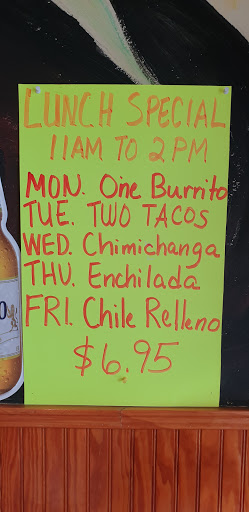 LUNCH SPECIAL
11AM TO 2PM
MON. One Burrito
TUE. TWO TACOS
WED. Chimichanga
THU. Enchilada
FRI. Chile Relleno
$6.95